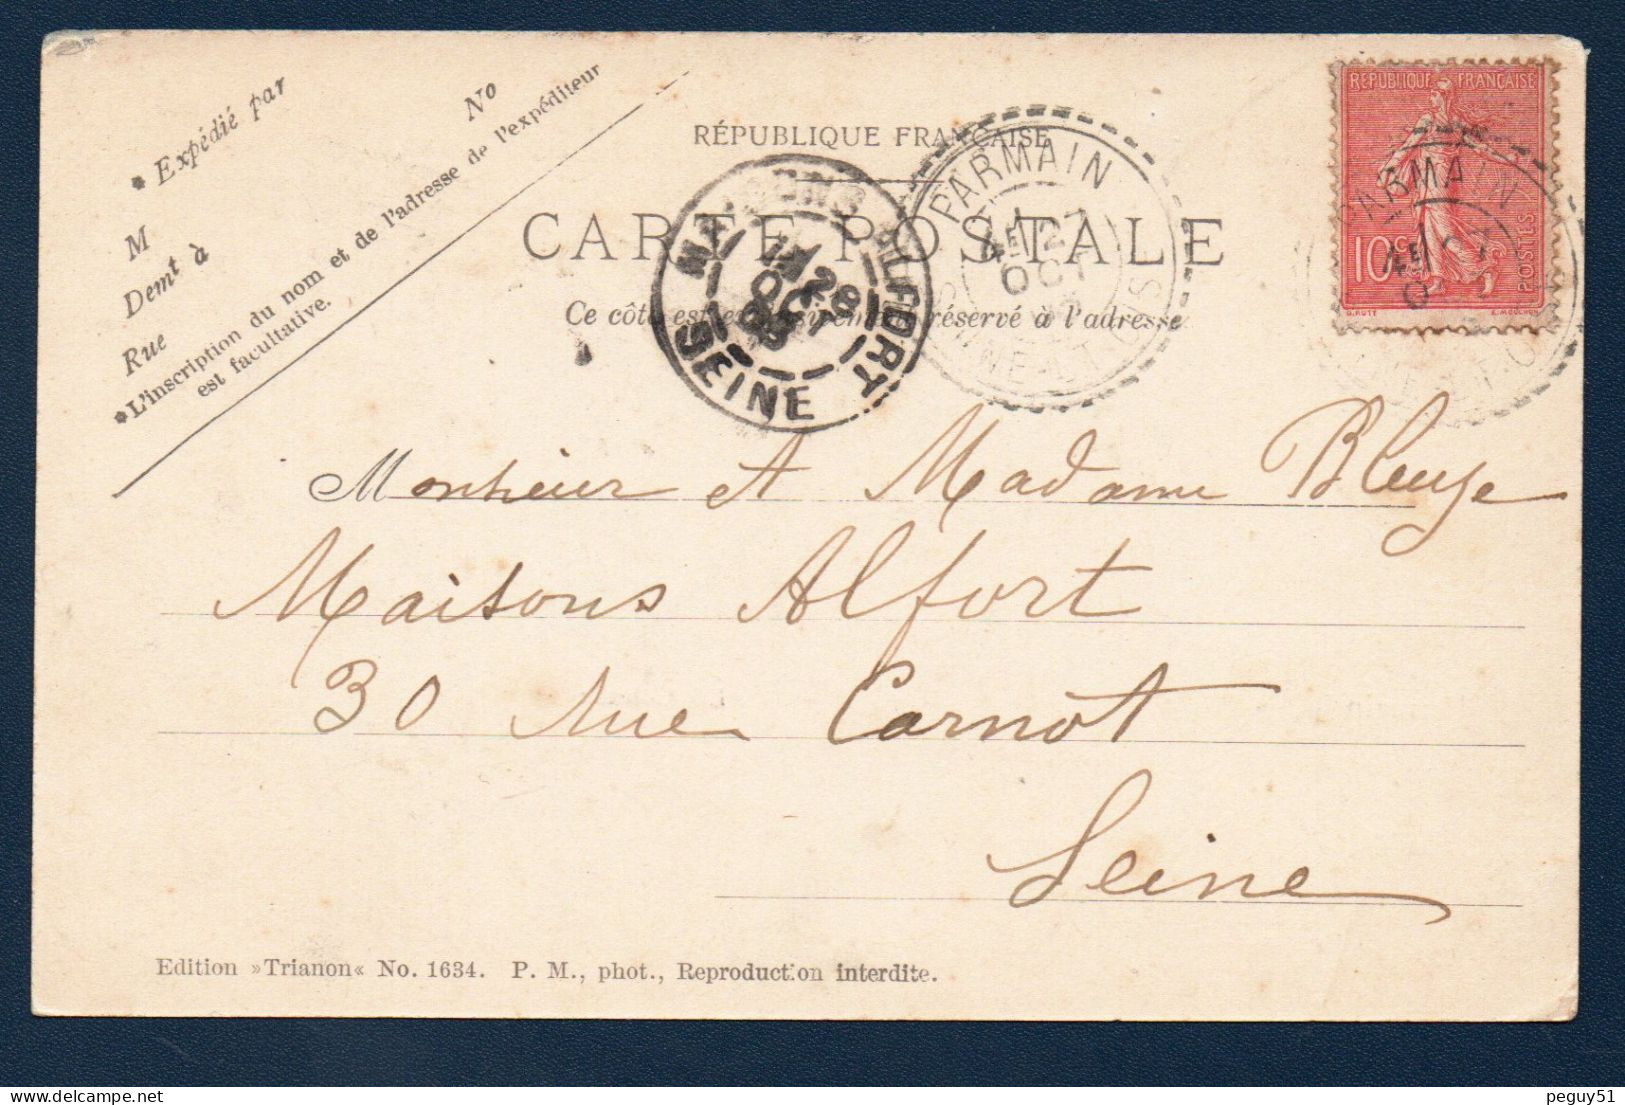 * Expédié par
No
M
Demt à
Rue
* L'inscription du nom et de l'adresse de l'expéditeur
est facultative.
RÉPUBLIQUE FRANÇAISE
CARTE POSTALE
Ce côté est exclusivement réservé à l'adresse
MAISONS ALFORT
OCT
SEINE
PARMAIN
4E
OCT
SEINE-ET-OISE
REPUBLIQUE FRANÇAISE
10c
POSTES
O.ROTY
E.MOUCHON
PARMAIN
4E
Monsieur et Madame Bleuze
Maisons Alfort
30 Rue Carnot
Seine
Edition »Trianon« No. 1634. P. M., phot., Reproduction interdite.
peguy51